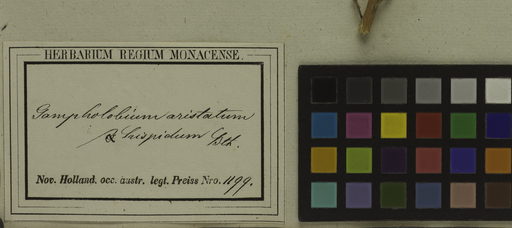 HERBARIUM REGIUM MONACENSE.
Gompholobium aristatum
β hispidum Bth.
Nov. Holland. occ. austr. legt. Preiss Nro. 1199.